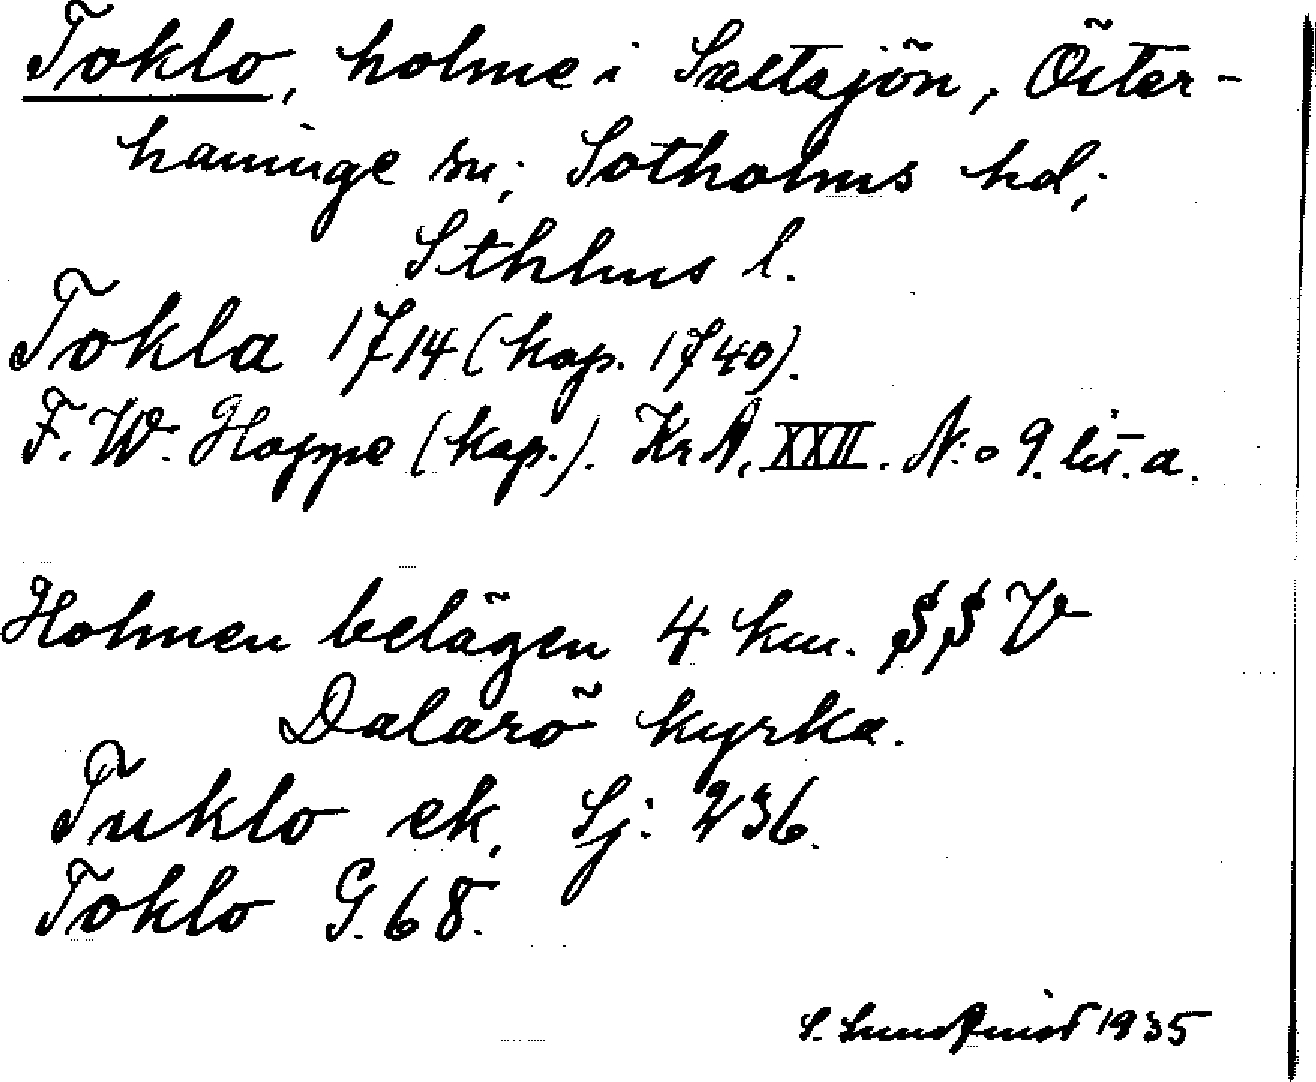 Toklo, holme i Saltsjön, Öster-
haninge sn; Sotholms hd;
Sthlms l.
Tokla 1714 (kop. 1740).
F. W. Hoppe (kop.). KrA. XXII. N:o 9. lit. a.
Holmen belägen 4 km. SSV
Dalarö kyrka.
Tuklo ek. Sj: 236.
Toklo G. 68.
S. Lundqvist 1935